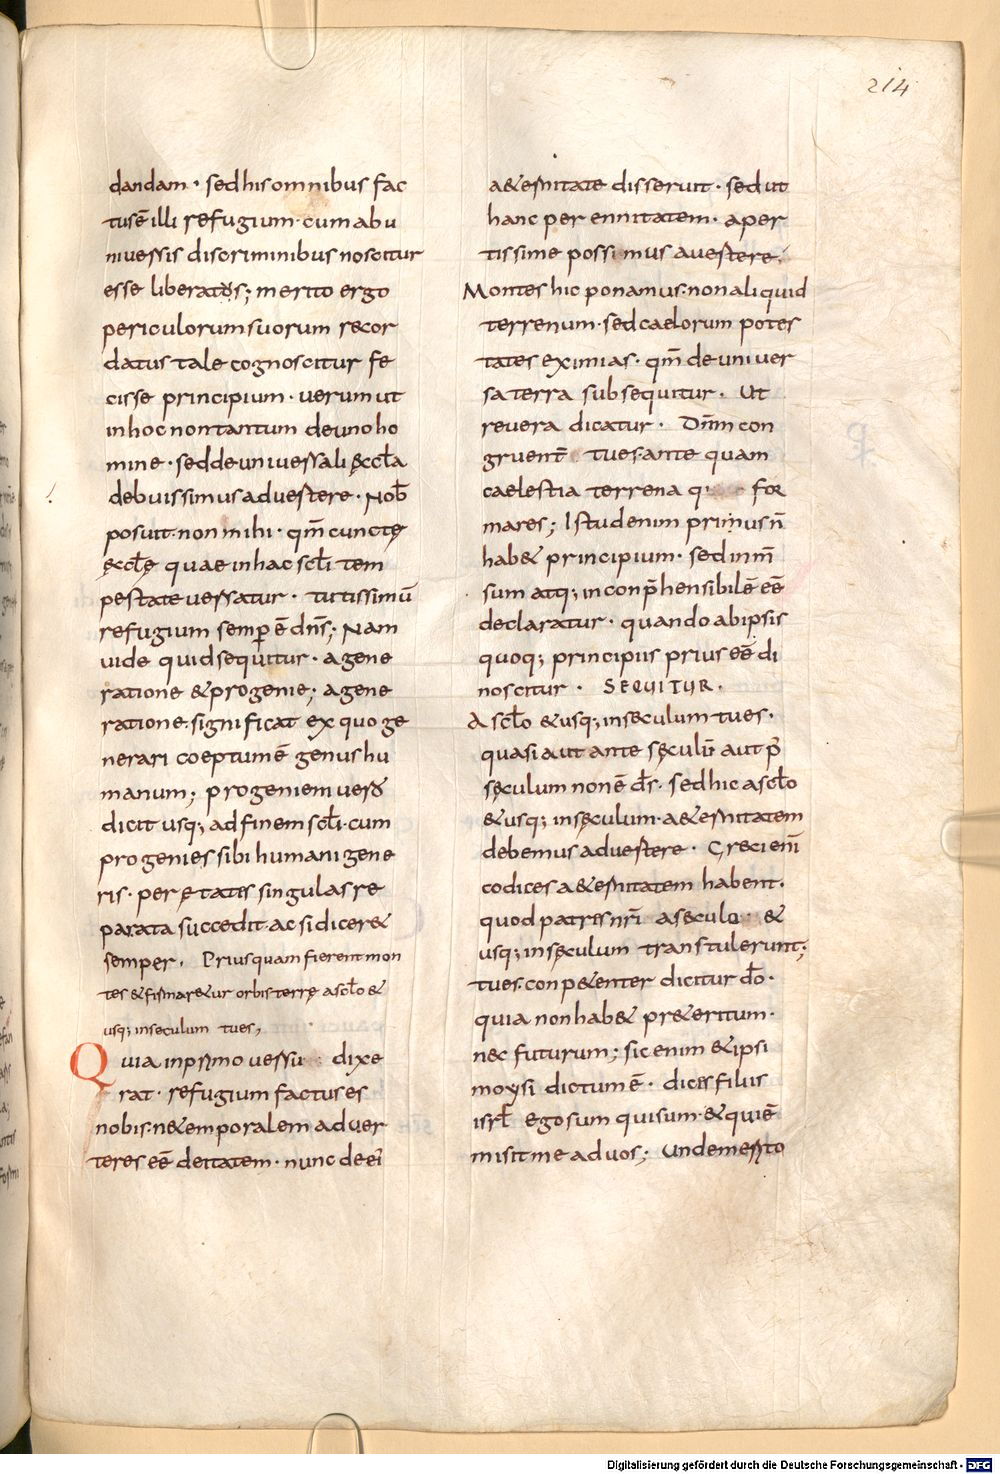 214
dandam · sed his omnibus fac
tus ē illi refugium · cum ab u
niuersis discriminibus noscitur
esse liberatus; merito ergo
periculorum suorum recor
datus tale cognoscitur fe
cisse principium · uerum ut
in hoc non tantum de uno ho
mine · sed de uniuersali ęccl̄a
debuissimus aduertere · Nob̄
posuit · non mihi · qm̄ cunctę
ęccl̄ę quae in hac scl̄i tem
pestate uersatur · tutissimū
refugium semp̄ ē dn̄s; Nam
uide quid sequitur · a gene
ratione & progenie; a gene
ratione · significat ex quo ge
nerari coeptum ē genus hu
manum; progeniem uero
dicit usq; ad finem scl̄i · cum
progenies sibi humani gene
ris · per ętates singulas re
parata succedit · ac si dicer&
semper · Priusquam fierent mon
tes & firmar&ur orbis terrę a scl̄o &
usq; in seculum tu es,
Quia in primo uersu dixe
rat · refugium factus es
nobis · ne temporalem aduer
teres eē deitatem · nunc de ei
a&ernitate disseruit · sed ut
hanc perennitatem · aper
tissime possimus auertere;
Montes hic ponamus · non aliquid
terrenum · sed caelorum potes
tates eximias · qm̄ de uniuer
sa terra subsequitur · Ut
reuera dicatur · Dn̄m con
gruent̄ tu es · ante quam
caelestia terrena q· for
mares; Istud enim primus n̄
hab& principium · sed inm̄
sum atq; inconp̄hensibilē eē
declaratur · quando ab ipsis
quoq; principiis prius eē di
noscitur · SEQUITUR ·
A scl̄o & usq; in seculum tu es ·
quasi aut ante sęculū aut p̄
sęculum non ē d̄s · sed hic a scl̄o
& usq; in sęculum · a&ernitatem
debemus aduertere · Greci enī
codices a&ernitatem habent ·
quod patres nr̄i a seculo · &
usq; in sęculum transtulerunt;
tu es · conp&enter dicitur dō ·
quia non hab& pr&eritum ·
nec futurum; sic enim & ipsi
moysi dictum ē · dices filiis
isrl̄ Ego sum qui sum · & qui ē
misit me ad uos; Unde merito
Digitalisierung gefördert durch die Deutsche Forschungsgemeinschaft · DFG